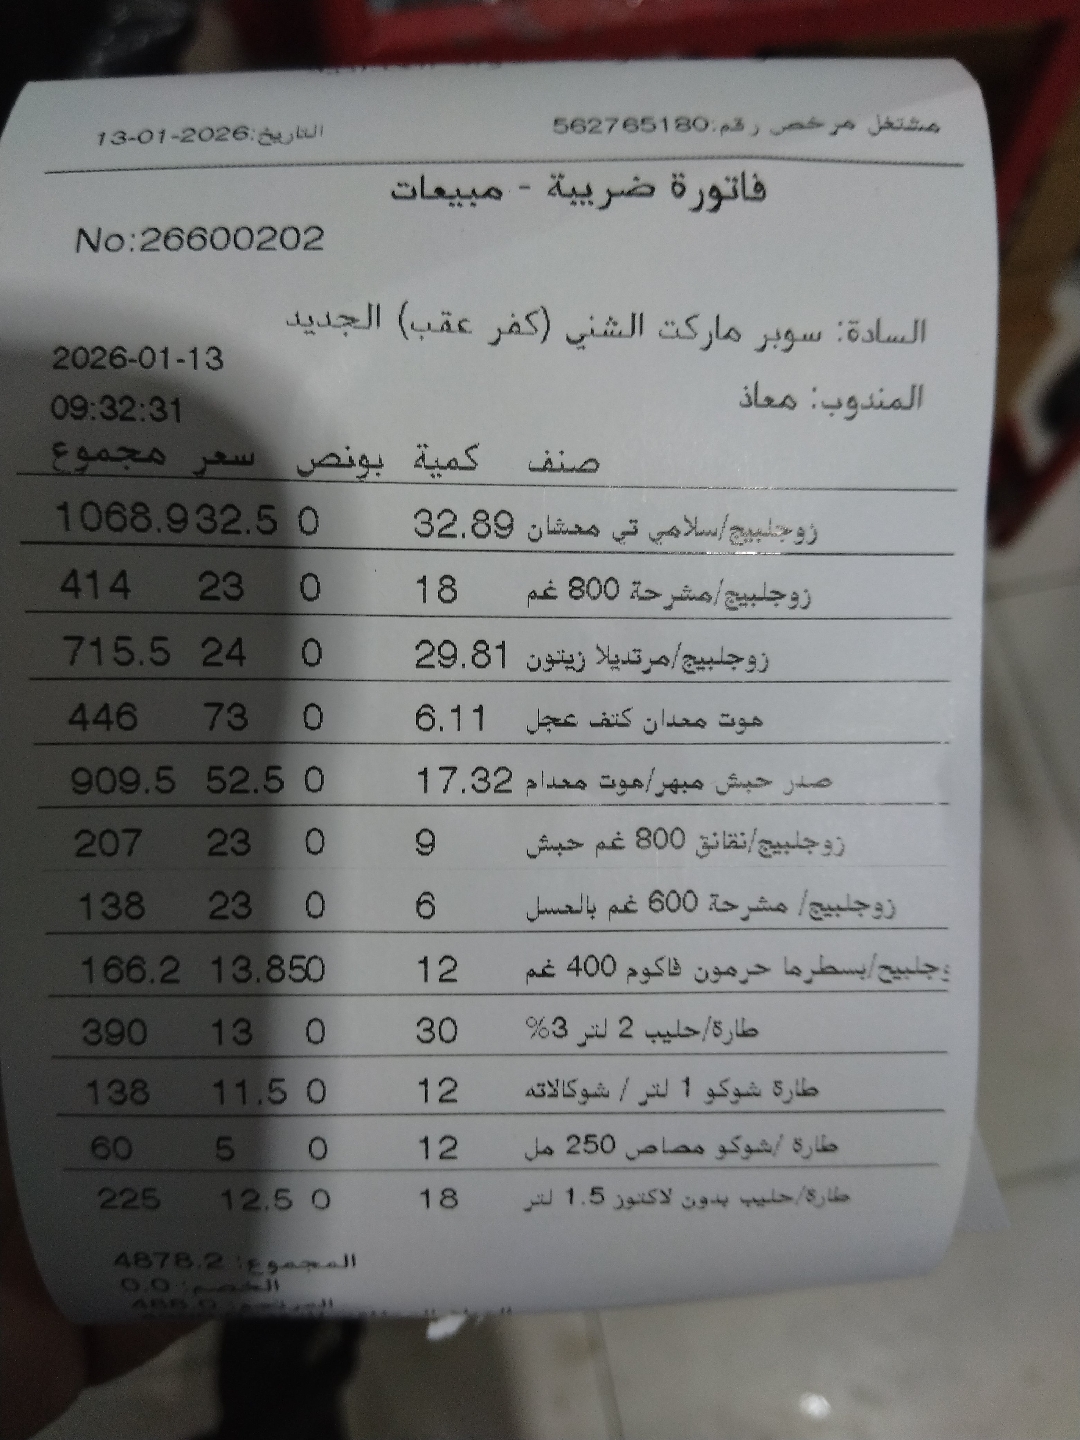 مشتغل مرخص رقم:562765180 التاريخ:13-01-2026
فاتورة ضريبية - مبيعات
No:26600202
السادة: سوبر ماركت الشني (كفر عقب) الجديد
2026-01-13
المندوب: معاذ
09:32:31
صنف كمية بونص سعر مجموع
زوجلبيج/سلامي تي معشان 32.89 0 32.5 1068.9
زوجلبيج/مشرحة 800 غم 18 0 23 414
زوجلبيج/مرتديلا زيتون 29.81 0 24 715.5
هوت معدان كتف عجل 6.11 0 73 446
صدر حبش مبهر/هوت معدام 17.32 0 52.5 909.5
زوجلبيج/نقانق 800 غم حبش 9 0 23 207
زوجلبيج/ مشرحة 600 غم بالعسل 6 0 23 138
وجلبيح/بسطرما حرمون فاكوم 400 غم 12 0 13.85 166.2
طارة/حليب 2 لتر 3% 30 0 13 390
طارة شوكو 1 لتر / شوكالاته 12 0 11.5 138
طارة /شوكو مصاص 250 مل 12 0 5 60
طارة/حليب بدون لاكتوز 1.5 لتر 18 0 12.5 225
المجموع: 4878.2
الخصم: 0.0